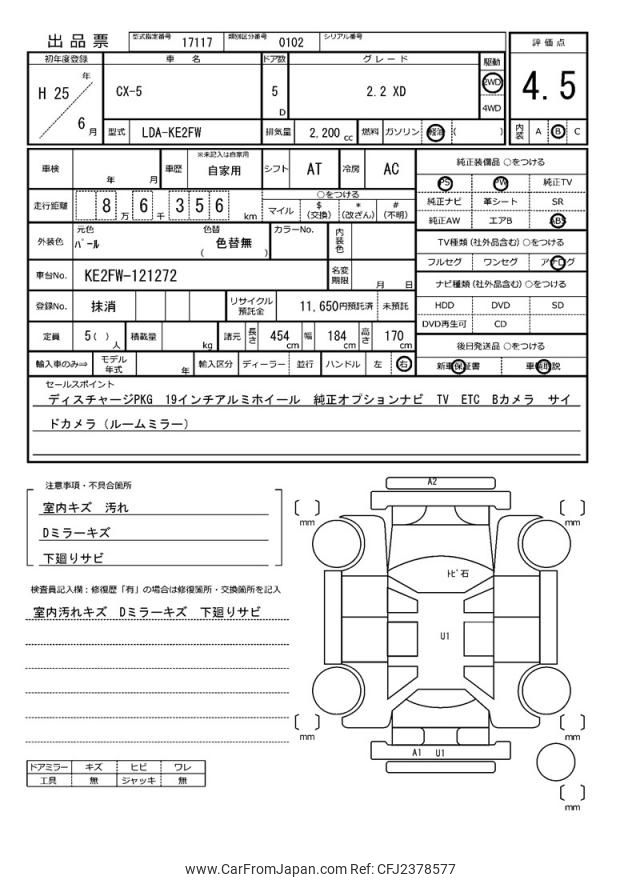 出品票 型式指定番号 17117 類別区分番号 0102 シリアル番号
評価点
4.5
初年度登録 車名 ドア数 グレード 駆動
H 25 年 6 月 CX-5 5 D 2.2 XD 2WD 4WD
型式 LDA-KE2FW 排気量 2,200 cc 燃料 ガソリン 軽油 ( )
内装 A B C
車検 年 月 車歴 ※未記入は自家用 自家用 シフト AT 冷房 AC
走行距離 8 万 6 千 3 5 6 km
○をつける
マイル $ (交換) * (改ざん) # (不明)
外装色 元色 パール 色替 色替無 ( ) カラーNo. 内装色
車台No. KE2FW-121272 名変期限 月 日
登録No. 抹消 リサイクル預託金 11,650円預託済 未預託
定員 5( ) 人 積載量 kg 諸元 長さ 454 cm 幅 184 cm 高さ 170 cm
輸入車のみ⇒ モデル年式 年 輸入区分 ディーラー 並行 ハンドル 左 右
純正装備品 ○をつける
PS PW 純正TV
純正ナビ 革シート SR
純正AW エアB ABS
TV種類 (社外品含む) ○をつける
フルセグ ワンセグ アナログ
ナビ種類 (社外品含む) ○をつける
HDD DVD SD
DVD再生可 CD
後日発送品 ○をつける
新車保証書 車輌取説
セールスポイント
ディスチャージPKG 19インチアルミホイール 純正オプションナビ TV ETC Bカメラ サイ
ドカメラ（ルームミラー）
注意事項・不具合箇所
室内キズ 汚れ
Dミラーキズ
下廻りサビ
検査員記入欄：修復歴「有」の場合は修復箇所・交換箇所を記入
室内汚れキズ Dミラーキズ 下廻りサビ
ドアミラー キズ ヒビ ワレ
工具 無 ジャッキ 無
A2
[ ] mm
[ ] mm
トビ石
U1
[ ] mm
[ ] mm
A1 U1
[ ] mm
www.CarFromJapan.com Ref: CFJ2378577